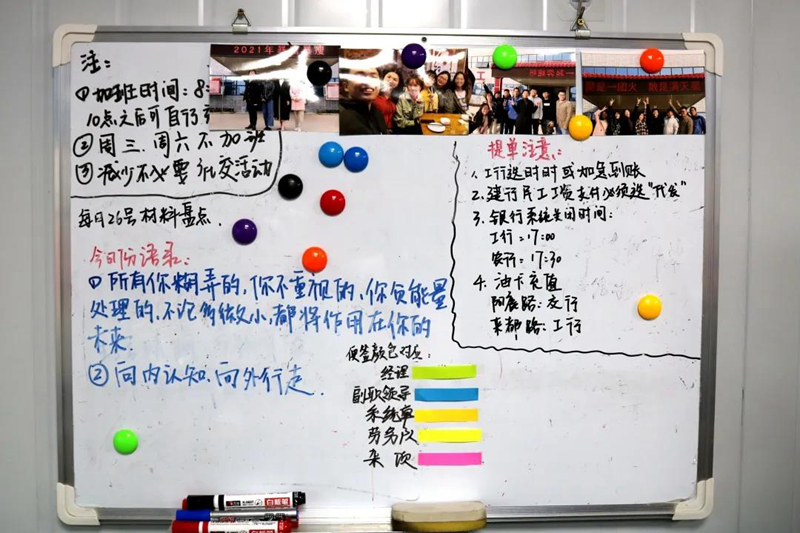 注:
①加班时间:8:
10点之后可自行
②周三、周六不加班
③减少不必要社交活动
每月26号材料盘点.
今日份语录:
①所有你糊弄的,你不重视的,你负能量
处理的,不论多微小,都将作用在你的
未来.
②向内认知,向外行走.
2021年
提单注意:
1.工行选时时或加急到账
2.建行民工工资支付必须选"代发"
3.银行系统关闭时间:
工行:17:00
农行:17:30
4.油卡充值
阳展路:交行
来都路:工行
便签颜色对应:
经理
副职领导
系统单
劳务队
杂项
白板笔